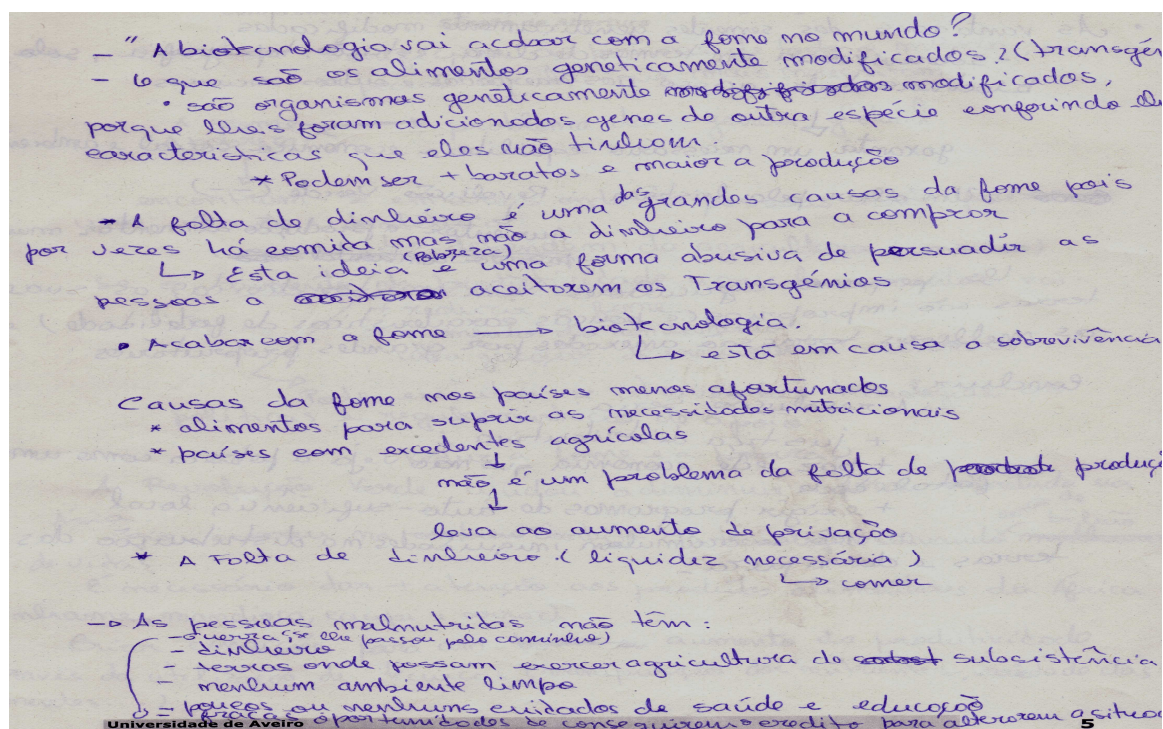 - "A biotecnologia vai acabar com a fome no mundo?
- O que são os alimentos geneticamente modificados? (transgén
• são organismos geneticamente modificados,
porque lhes foram adicionados genes de outra espécie conferindo
características que eles não tinham.
* Podem ser + baratos e maior a produção
- A falta de dinheiro é uma das grandes causas da fome pois
por vezes há comida mas não a dinheiro para a comprar
↳ Esta ideia (Pobreza) é uma forma abusiva de persuadir as
pessoas a aceitarem os Transgénios
• Acabar com a fome → biotecnologia.
↳ está em causa a sobrevivência
Causas da fome nos países menos afortunados
* alimentos para suprir as necessidades nutricionais
* países com excedentes agrícolas
↓
não é um problema da falta de produç
↓
leva ao aumento de privação
* A Falta de dinheiro (liquidez necessária)
↳ comer
→ As pessoas malnutridas não têm:
- Guerra (se lhe passou pelo caminho)
- dinheiro
- terras onde possam exercer agricultura de subsistência
- nenhum ambiente limpo
- poucos ou nenhuns cuidados de saúde e educação
- fracas oportunidades de conseguirem o credito para alterarem a situa
Universidade de Aveiro 5